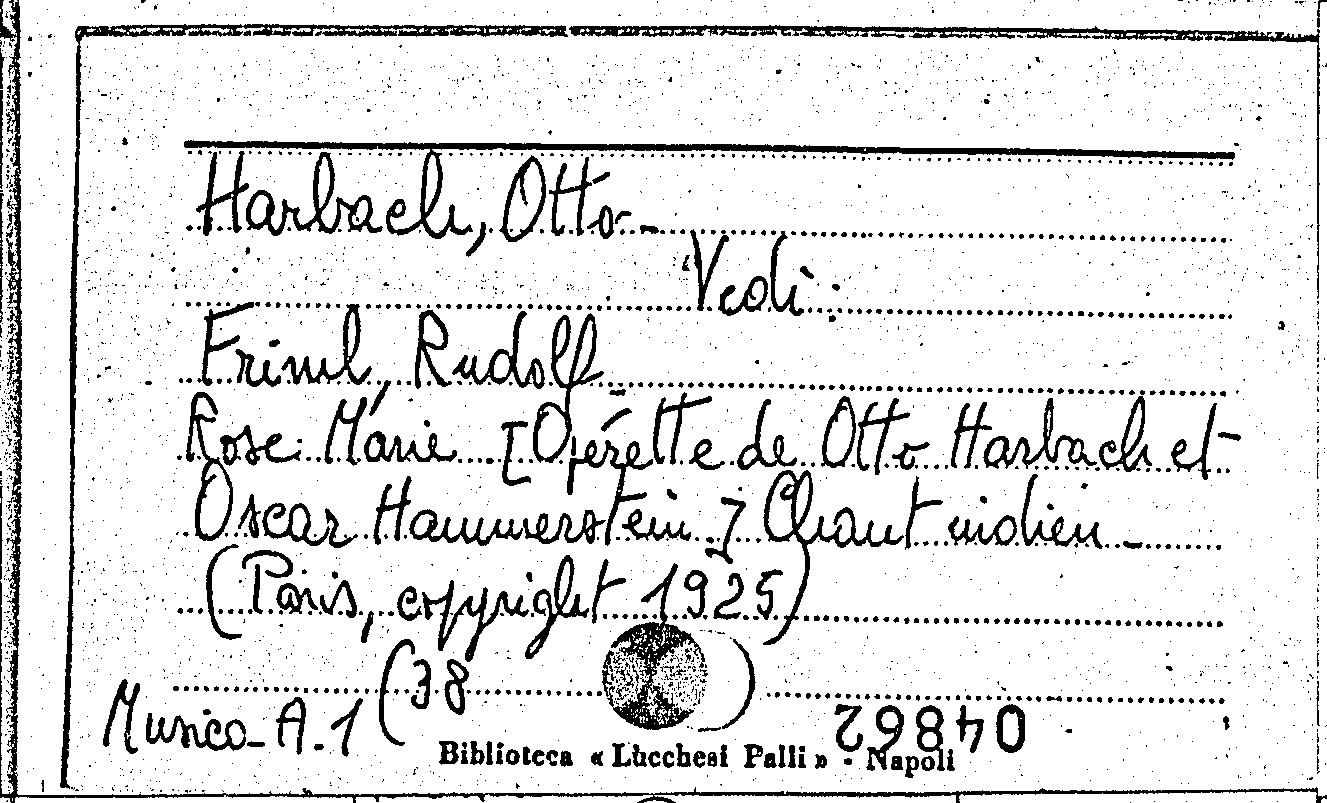 Harbach, Otto -
Vedi:
Friml, Rudolf
Rose Marie [Opérette de Otto Harbach et
Oscar Hammerstein] Chant indien -
(Paris, copyright 1925)
Musica - A. 1 (38
04862
Biblioteca « Lucchesi Palli » - Napoli